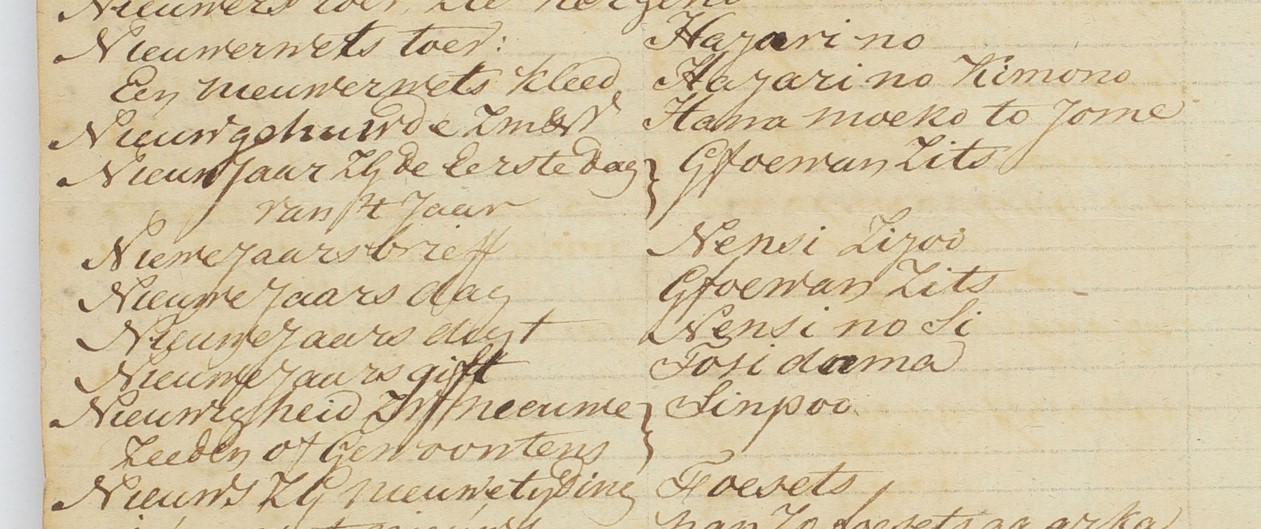 Nieuwerwets toer: Hayari no
Een nieuwerwets kleed Hayari no Kimono
Nieuwgehuwde Zm&W Hana moeko to Jome
Nieuwjaar Zy de Eerste dag } Gfoewan Zits
van 't Jaar
Niewejaarsbrieff Nensi Zizoo
Nieuwejaarsdag Gfoewan Zits
Nieuwejaars digt Nensi no Si
Nieuwejaars gift Tosidama
Nieuwigheid nieuwe } Sinpoo
Zeeden of Gewoontens
Nieuws Zy nieuwetyding Foesets